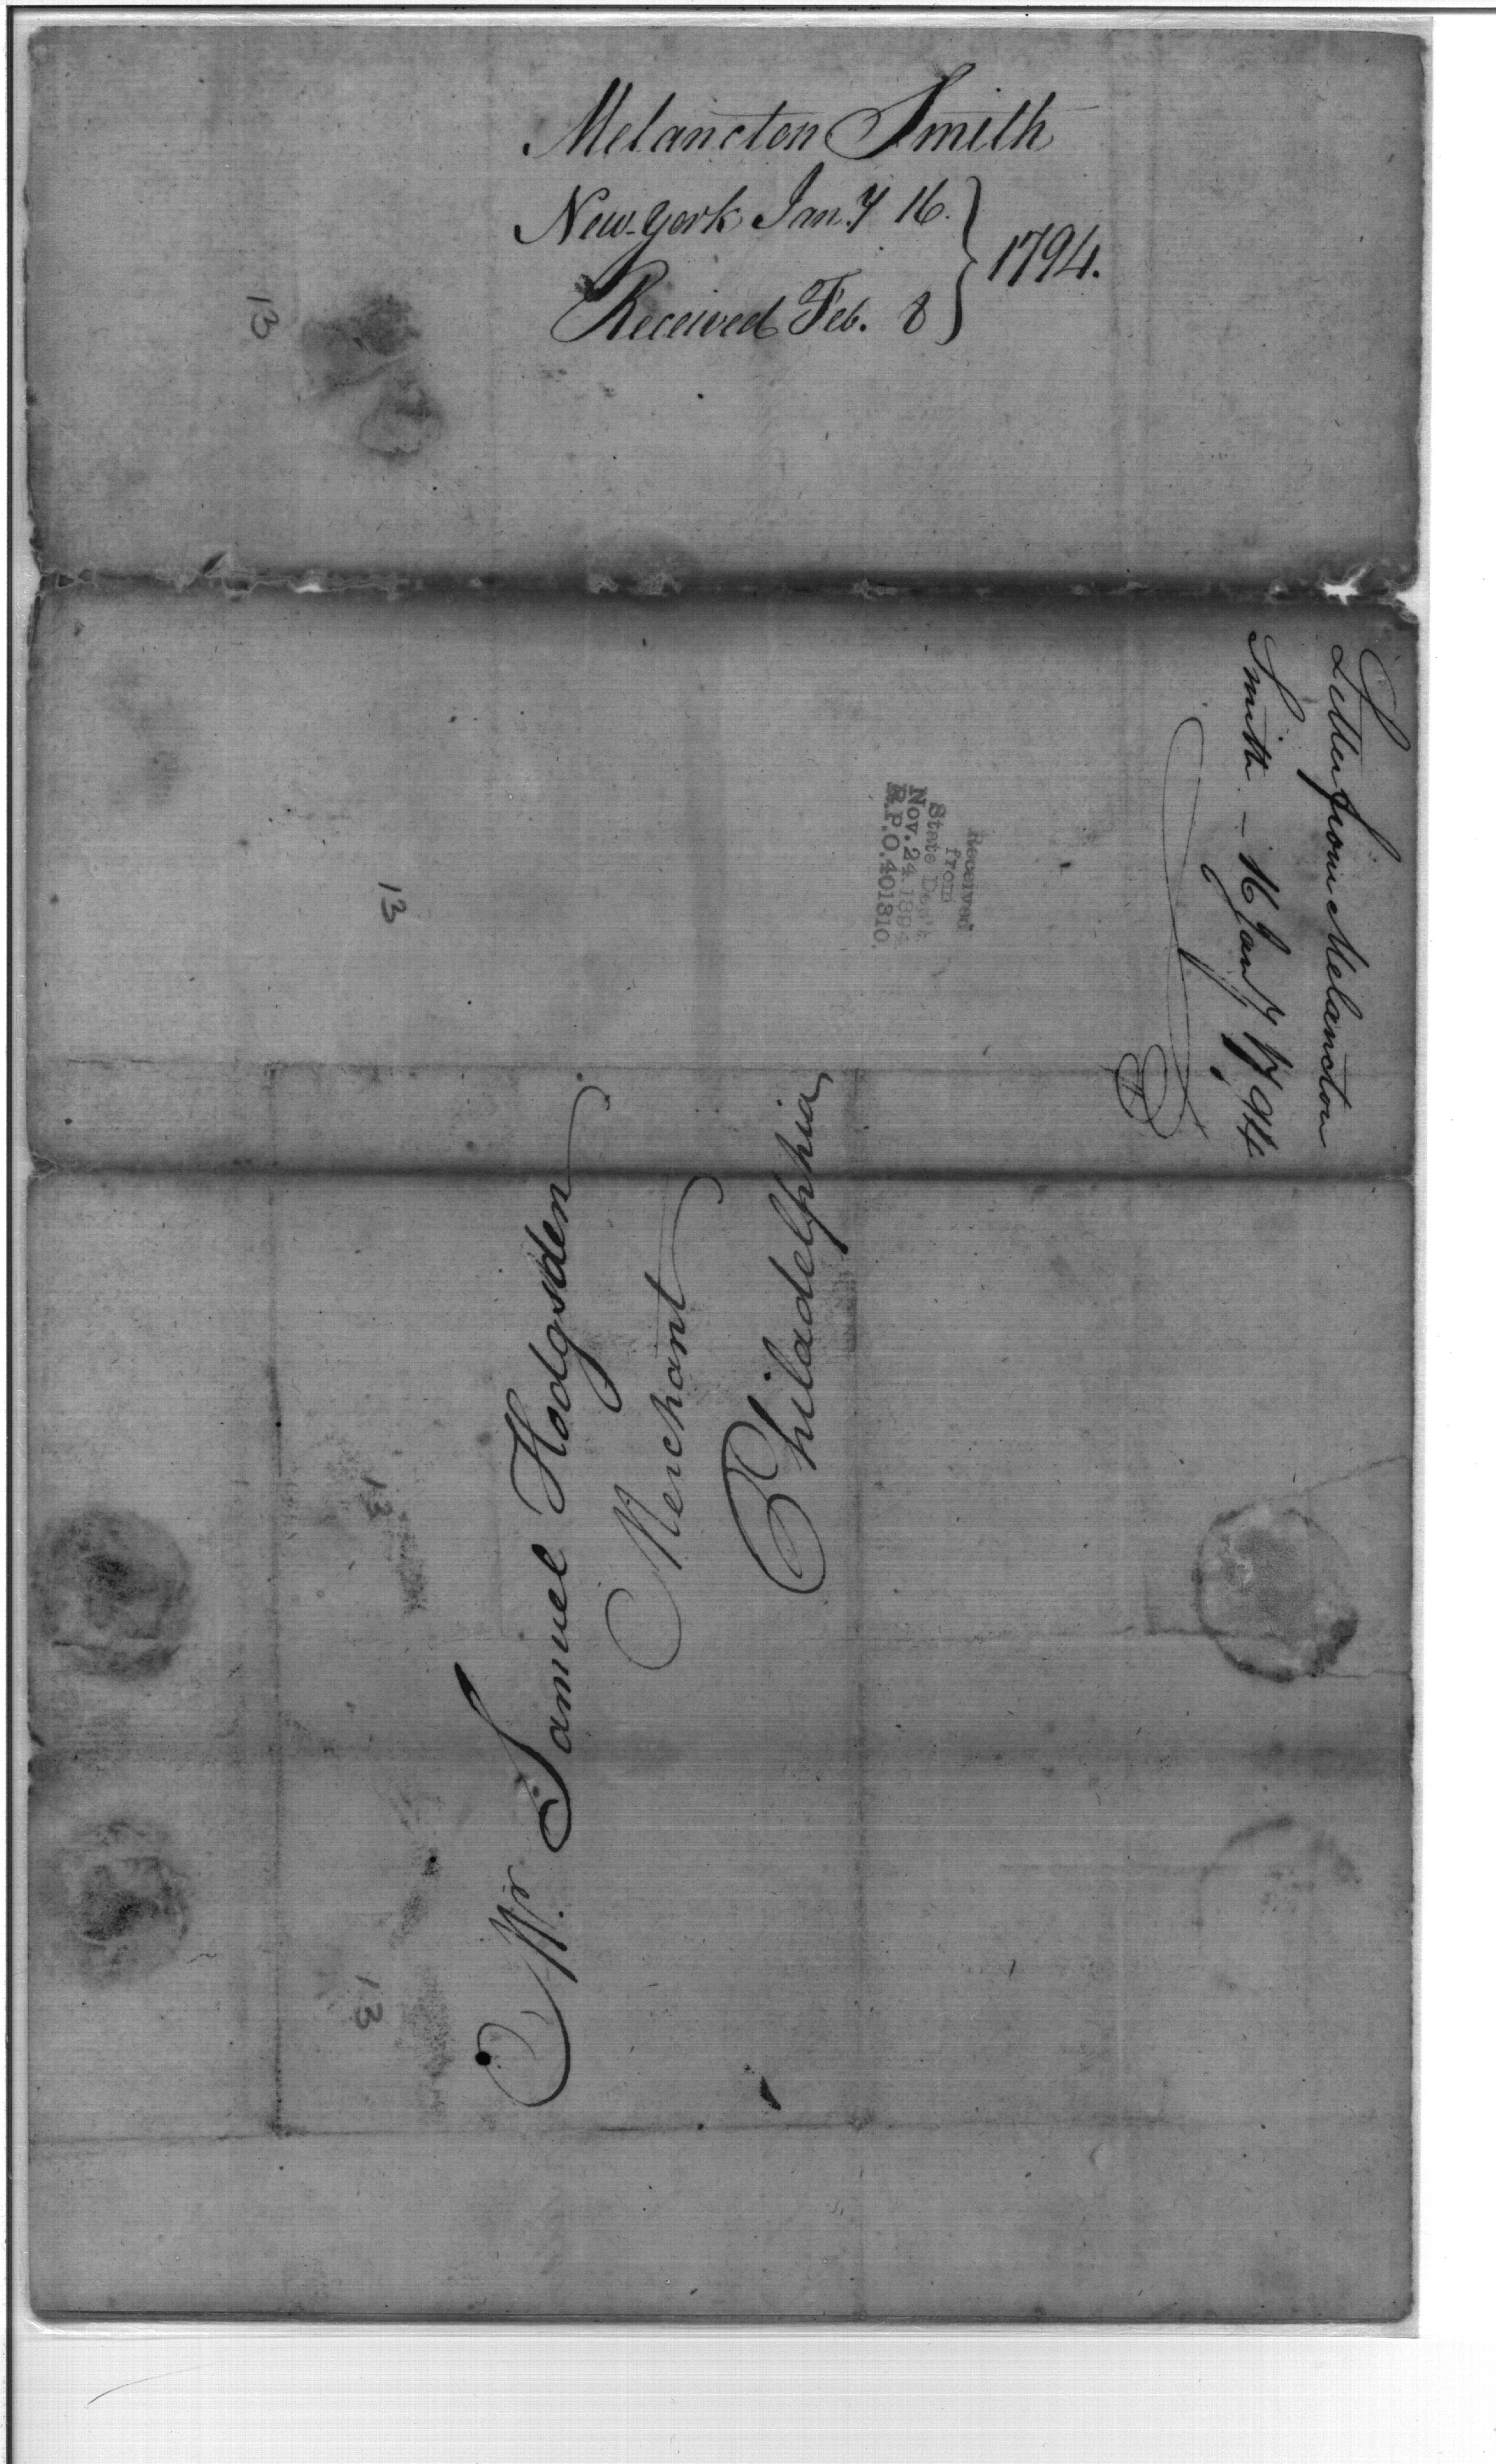 Melancton Smith
New-york Jany 16.
Received Feb. 8
1794.
13
Letter from Melancton
Smith – 16 Jany 1794
Received
from
State Dep't.
Nov. 24, 1894
R.P.O. 401310.
13
Mr. Samuel Hodgsden
Merchant
Philadelphia
13
13